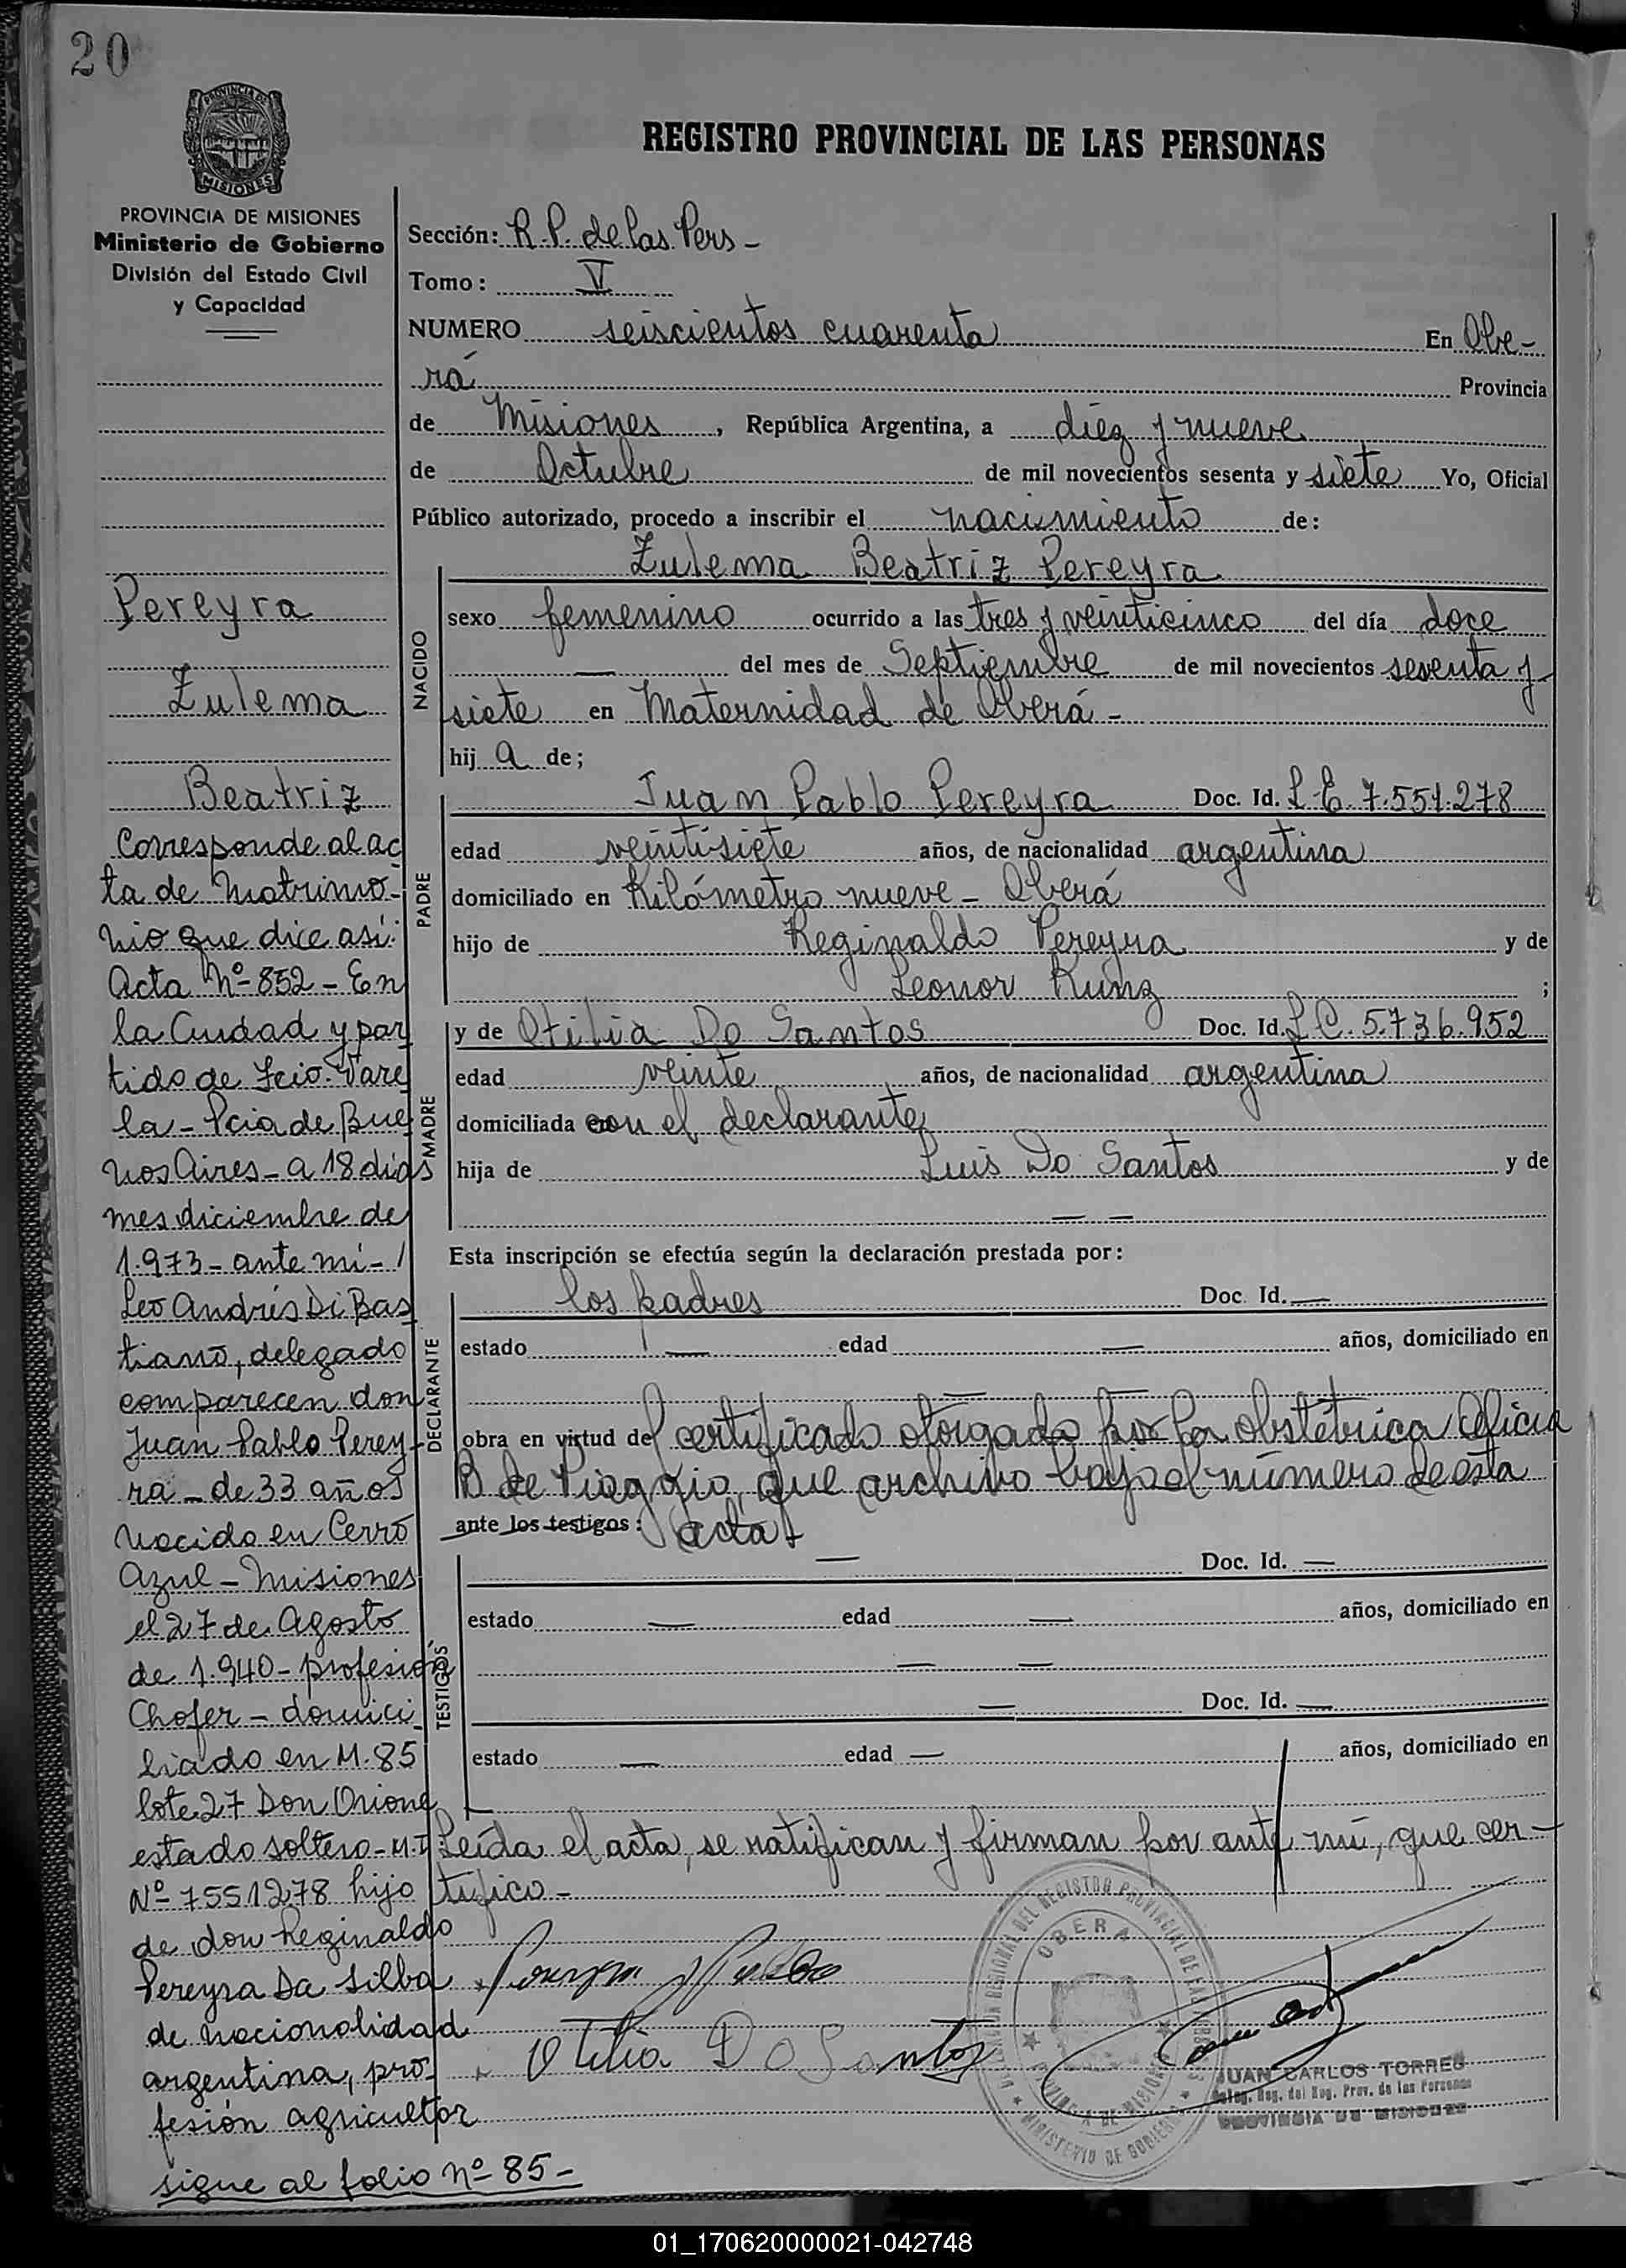 20
PROVINCIA DE
MISIONES
PROVINCIA DE MISIONES
Ministerio de Gobierno
División del Estado Civil
y Capacidad
REGISTRO PROVINCIAL DE LAS PERSONAS
Sección: R.P. de las Pers -
Tomo: V
NUMERO seiscientos cuarenta En Obe-
rá Provincia
de Misiones, República Argentina, a diez y nueve
de Octubre de mil novecientos sesenta y siete Yo, Oficial
Público autorizado, procedo a inscribir el nacimiento de:
Zulema Beatriz Pereyra
NACIDO
sexo femenino ocurrido a las tres y veinticinco del día doce
— del mes de Septiembre de mil novecientos sesenta y
siete en Maternidad de Oberá -
hij a de;
PADRE
Juan Pablo Pereyra Doc. Id. L.E. 7.551.278
edad veintisiete años, de nacionalidad argentina
domiciliado en Kilómetro nueve - Oberá
hijo de Reginaldo Pereyra y de
Leonor Kunz ;
MADRE
y de Otilia Do Santos Doc. Id. L.C. 5.736.952
edad veinte años, de nacionalidad argentina
domiciliada con el declarante
hija de Luis Do Santos y de
— —
Esta inscripción se efectúa según la declaración prestada por:
DECLARANTE
los padres Doc. Id. —
estado — edad — años, domiciliado en
— —
obra en virtud del certificado otorgado por la obstétrica Oficia
B de Piaggio, que archivo bajo el número de esta
ante los testigos: acta -
TESTIGOS
— Doc. Id. —
estado — edad — años, domiciliado en
— —
— Doc. Id. —
estado — edad — años, domiciliado en
Leída el acta, se ratifican y firman por ante mí, que cer-
tifico -
Otilia Do Santos
OBERA
MINISTERIO DE GOBIERNO
JUAN CARLOS TORRES
Deleg. Reg. del Reg. Prov. de las Personas
PROVINCIA DE MISIONES
Pereyra
Zulema
Beatriz
Corresponde al ac
ta de Matrimo-
nio que dice así:
Acta Nº 852 - En
la Ciudad y par
tido de Fcio. Vare
la - Pcia de Bue
nos Aires - a 18 días
mes diciembre de
1.973 - ante mí - /
Leo Andrés Di Bas
tiano, delegado
comparecen don
Juan Pablo Perey-
ra - de 33 años
Nacido en Cerro
Azul - Misiones
el 27 de Agosto
de 1.940 - profesión
Chofer - domici-
liado en M. 85
lote 27 Don Orione
estado soltero - M.I
Nº 7551278 hijo
de don Reginaldo
Pereyra Da Silba
de nacionalidad
argentina, pro-
fesión agricultor
sigue al folio nº 85 -
01_170620000021-042748